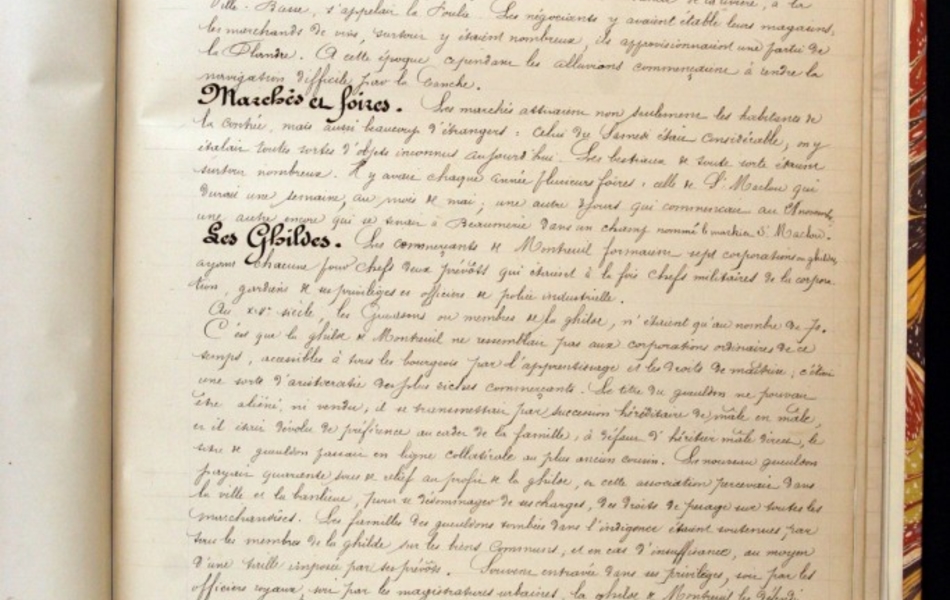 Ville-Basse, s'appelait la Poulie. Les négociants y avaient établi leurs magasins,
les marchands de vins, surtout y étaient nombreux, ils approvisionnaient une partie de
la Flandre. A cette époque, cependant les alluvions commençaient à rendre la
navigation difficile par la Canche.
Marchés et foires. Les marchés attiraient non seulement les habitants de
la contrée, mais aussi beaucoup d'étrangers : celui du Samedi était considérable, on y
étalait toutes sortes d'objets inconnus aujourd'hui. Les bestiaux de toute sorte étaient
surtout nombreux. Il y avait chaque année plusieurs foires : celle de St Maclou qui
durait une semaine, au mois de mai ; une autre jours qui commençait au novembre,
une autre encore qui se tenait à Beaumerie dans un champ nommé le St Maclou.
Les Ghildes. Les commerçants de Montreuil formaient sept corporations ou ghildes,
ayant chacune pour chefs deux prévôts qui étaient à la fois chefs militaires de la corpora-
tion, gardiens de ses privilèges et officiers de police industrielle.
Au XVe siècle, les Gueudons ou membres de la ghilde, n'étaient qu'au nombre de 70.
C'est que la ghilde de Montreuil ne ressemblait pas aux corporations ordinaires de ce
temps, accessibles à tous les bourgeois par l'apprentissage et les droits de maîtrise ; c'était
une sorte d'aristocratie des plus riches commerçants. Le titre du gueudon ne pouvait
être aliéné, ni vendu, il se transmettait par succession héréditaire de mâle en mâle,
et il était dévolu de préférence au cadet de la famille ; à défaut d'héritier mâle direct, le
titre de gueudon passait en ligne collatérale au plus ancien cousin. Le nouveau gueudon
payait quarante sous de relief au profit de la ghilde, et cette association percevait dans
la ville et la banlieue, pour se dédommager de ses charges, des droits de pesage sur toutes les
marchandises. Les familles des gueudons tombées dans l'indigence étaient soutenues par
tous les membres de la ghilde sur les biens communs, et en cas d'insuffisance, au moyen
d'une taille imposée par ses prévôts. Souvent entravée dans ses privilèges, soit par les
officiers royaux, soit par les magistratures urbaines, la ghilde de Montreuil les défendit